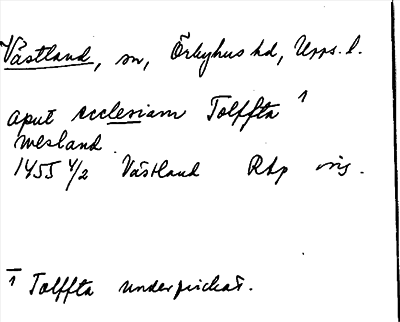 Västland, sn, Örbyhus hd, Upps. l.
aput ecclesiam Tolffta 1
wesland.
1455 4/2 Västland RAp orig.
1 Tolffta underprickat.